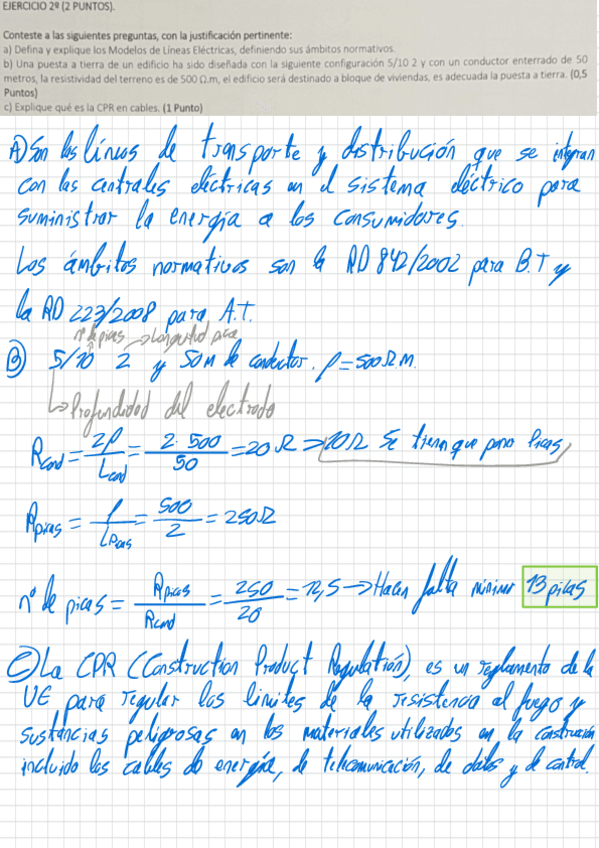 EJERCICIO 2º (2 PUNTOS).
Conteste a las siguientes preguntas, con la justificación pertinente:
a) Defina y explique los Modelos de Líneas Eléctricas, definiendo sus ámbitos normativos.
b) Una puesta a tierra de un edificio ha sido diseñada con la siguiente configuración 5/10 2 y con un conductor enterrado de 50
metros, la resistividad del terreno es de 500 Ω.m, el edificio será destinado a bloque de viviendas, es adecuada la puesta a tierra. (0,5
Puntos)
c) Explique qué es la CPR en cables. (1 Punto)
A) Son las líneas de transporte y distribución que se integran
con las centrales eléctricas en el sistema eléctrico para
suministrar la energía a los consumidores.
Los ámbitos normativos son la RD 842/2002 para B.T y
la RD 223/2008 para A.T.
nº de picas → Longitud pica
B) 5/10 2 y 50 m de conductor. ρ = 500 Ω.m.
↳ Profundidad del electrodo
Rcond = 2ρ/Lcond = 2·500/50 = 20 Ω ⇒ 20 Ω Se tienen que poner Picas
Rpicas = ρ/Lpicas = 500/2 = 250 Ω
nº de picas = Rpicas/Rcond = 250/20 = 12,5 → Hacen falta mínimo 13 picas
C) La CPR (Construction Product Regulation), es un reglamento de la
UE para regular los límites de la resistencia al fuego y
sustancias peligrosas en los materiales utilizados en la construcción
incluido los cables de energía, de telecomunicación, de datos y de control.